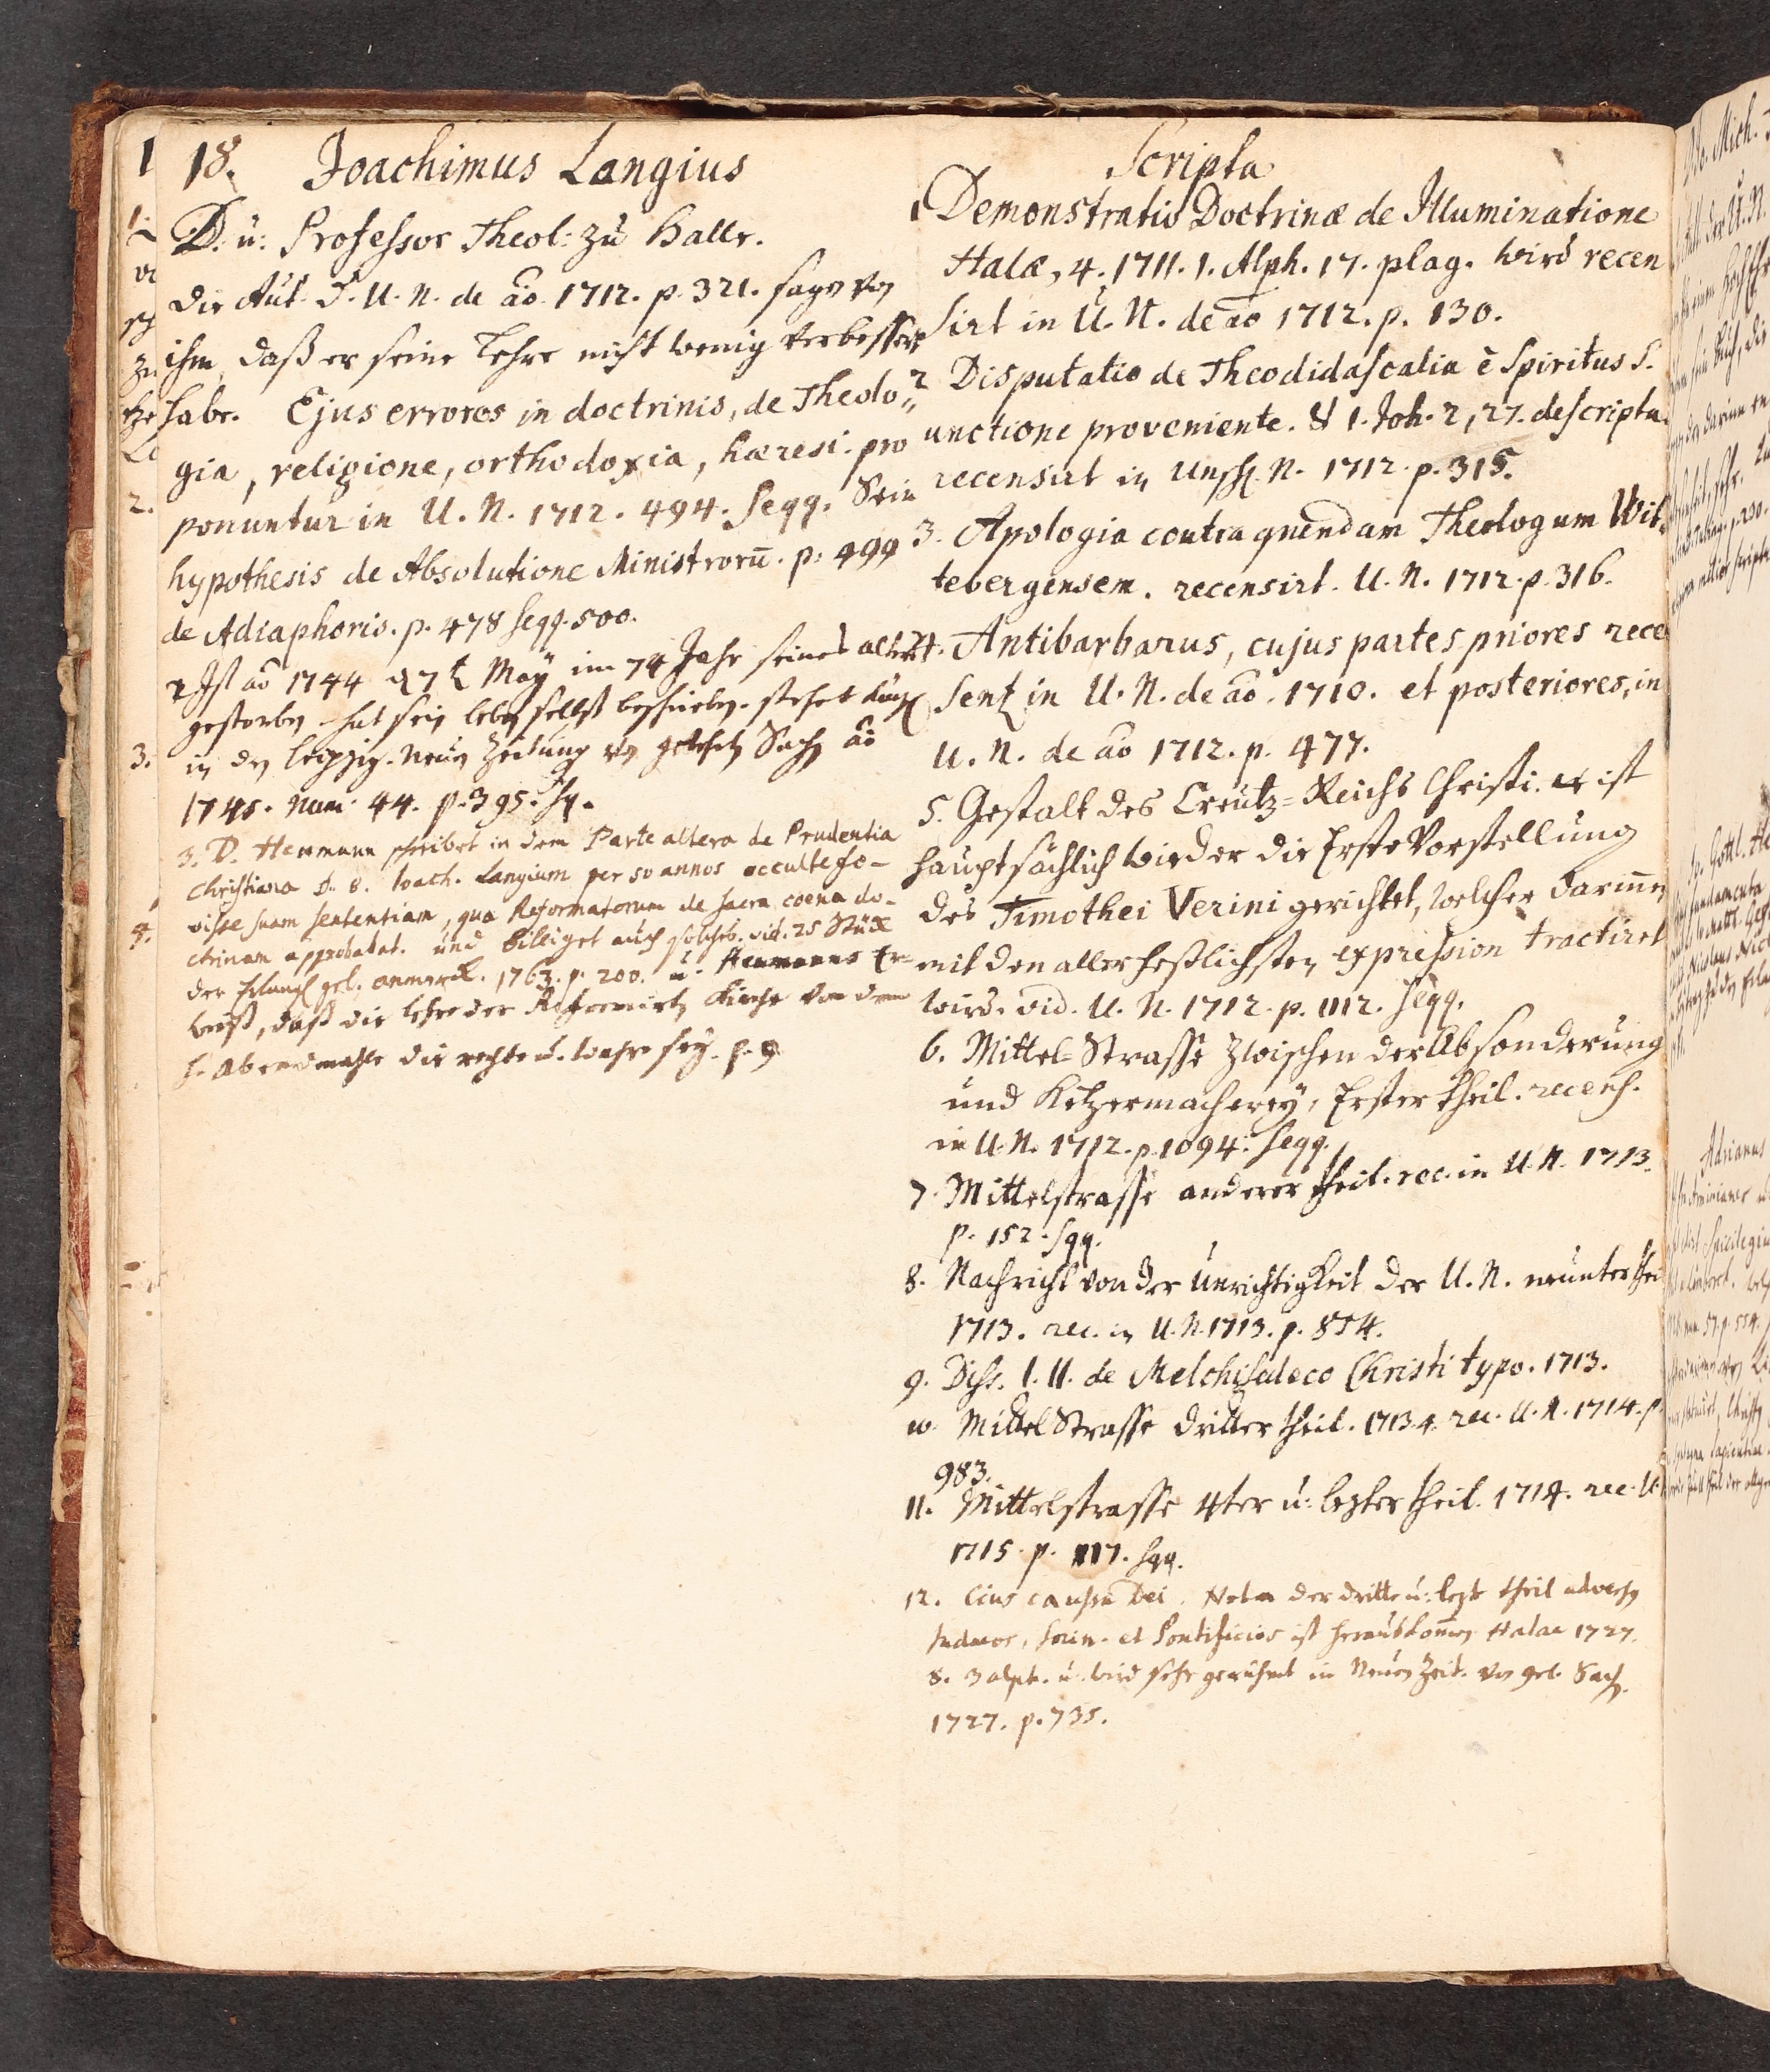 18. Joachimus Langius
D. u: Professor Theol: zu Halle.
Die Aut. D. U. N. de ao. 1712. p. 321. sagen von
ihm, daß er seine Lehre nicht wenig verbessert
habe. Ejus errores in doctrinis, de Theolo-
gia, religione, orthodoxia, hæresi. pro
ponuntur in U. N. 1712. 494. seqq. Sein
hypothesis de Absolutione Ministrorū. p. 499
de Adiaphoris. p. 478 seqq. 500.
2 Ist ao 1744 d 7t May im 74 Jahr seines alters
gestorben hat sein leben selbst beschrieben. stehet auch
in den leipzig. neuen Zeitung von gelehrten Sachen ao
1745. num. 44. p. 395. sq.
3. D. Heumann schreibet in dem Parte altera de Prudentia
Christiana D. 8. Ioach. Langium per 50 annos occulte fo-
visse suam sententiam, qua Reformatorum de sacra coena do-
ctrinam approbabat. und billiget auch solches. vid. 25 Stück
der Erlang. gel. anmerck. 1763. p. 200. u. Heumanns Er-
weiß, daß die Lehre der Reformirten Kirche von dem
h. Abendmahle die rechte u. wahre sey. p. 9
Scripta
1 Demonstratio Doctrinæ de Illuminatione
Halæ, 4. 1711. 1. Alph. 17. plag. wird recen
sirt in U. N. de ao 1712. p. 130.
2 Disputatio de Theodidascalia è Spiritus S.
unctione proveniente. & 1. Joh. 2, 27. descripta
recensirt in Unsch. N. 1712. p. 315.
3. Apologia contra quendam Theologum Wit-
tebergensem. recensirt. U. N. 1712. p. 316.
4. Antibarbarus, cujus partes priores rece
sent in U. N. de ao. 1710. et posteriores, in
U. N. de ao 1712. p. 477.
5. Gestalt des Creutz=Reichs Christi. er ist
hauptsächlich wieder die Erste Vorstellung
des Timothei Verini gerichtet, welcher darinnen
mit den allerheßlichsten expression tractiret
wird. vid. U. N. 1712. p. 1112. seqq.
6. Mittel-Strasse zwischen der Absonderung
und Ketzermacherey, Erster Theil. recens.
in U. N. 1712. p. 1094. seqq.
7. Mittelstrasse anderer theil. rec. in U. N. 1713.
p. 152. sqq.
8. Nachricht von der Unrichtigkeit der U. N. neunter thei
1713. rec. in U. N. 1713. p. 854.
9. Diss. I. II. de Melchisedeco Christi typo. 1713.
10. Mittel Strasse dritter theil. 1713. 4. rec. U. N. 1714. p.
983.
11. Mittelstrasse 4ter u. lezter theil. 1714. rec. U.
1715. p. 117. sqq.
12. Eius caussa Dei. der dritte u. lezte theil adversus
Iudaeos, Socin. et Pontificios ist herauskommen Halae 1727.
8. 3 alph. u. wird sehr gerühmt in Neuen Zeit. von gel. Sach.
1727. p. 735.